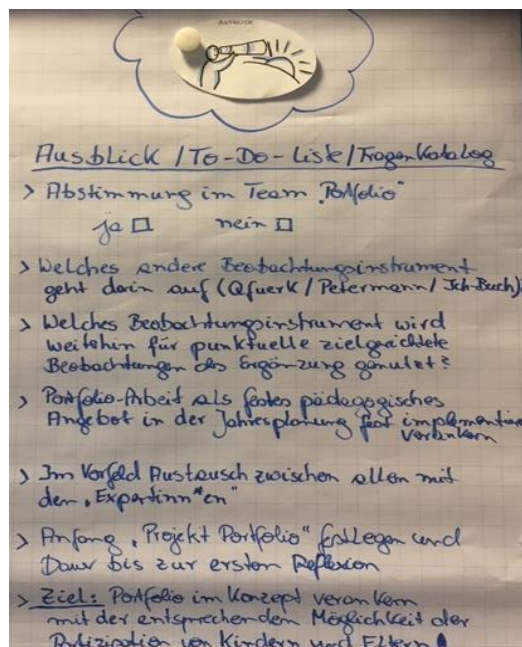 AUSBLICK
Ausblick / To-Do-Liste / Fragenkatalog
> Abstimmung im Team „Portfolio“
ja □ nein □
> Welches andere Beobachtungsinstrument
geht darin auf (Qfuerk / Petermann / Ich-Buch)?
> Welches Beobachtungsinstrument wird
weiterhin für punktuelle zielgerichtete
Beobachtungen als Ergänzung genutzt?
> Portfolio-Arbeit als festes pädagogisches
Angebot in der Jahresplanung fest implementieren
verankern
> Im Vorfeld Austausch zwischen allen mit
den „Expertinn*en“
> Anfang „Projekt Portfolio“ festlegen und
Dauer bis zur ersten Reflexion
> Ziel: Portfolio im Konzept verankern
mit der entsprechenden Möglichkeit der
Partizipation von Kindern und Eltern!